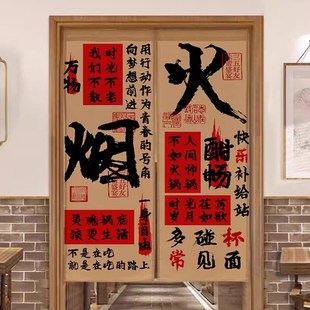 火
烟
酣畅
快乐补给站
人间忡锅
不如火锅
时光荏苒
岁月如歌
多碰杯
常见面
用行动作为青春的号角
向梦想前进
时光不老
我们不散
万物
一身自由
灵魂锅忘
滚烫生活
不是在吃
就是在吃的路上